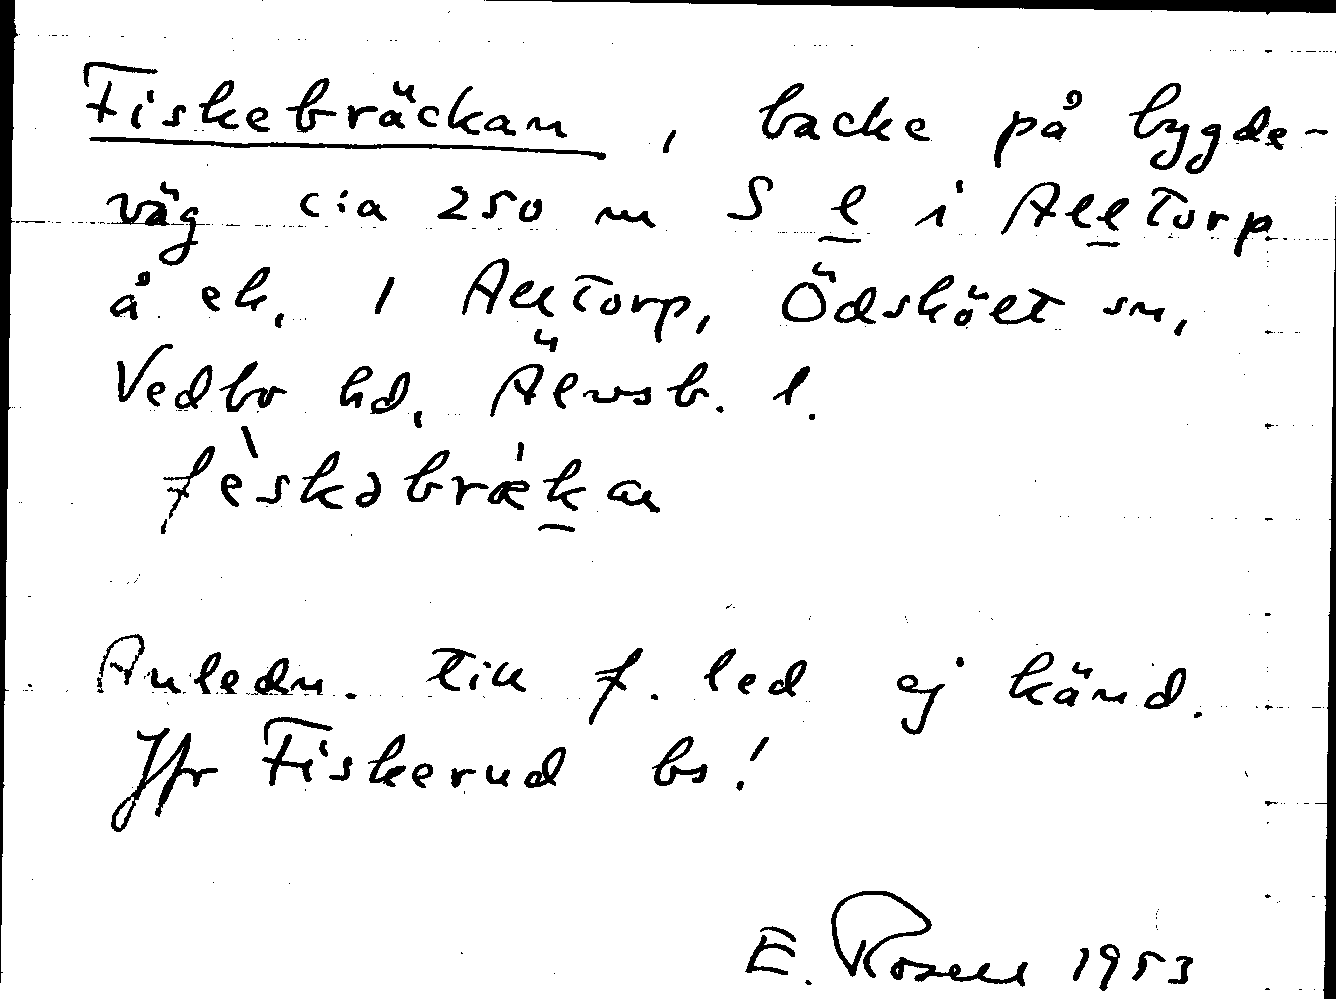 Fiskebräckan, backe på bygde-
väg c:a 250 m S l i Alltorp
å ek. 1 Alltorp, Ödskölt sn,
Vedbo hd, Älvsb. l.
fèskəbrækan
Anledn. till f. led ej känd.
Jfr Fiskerud bs!
E. Rosell 1953